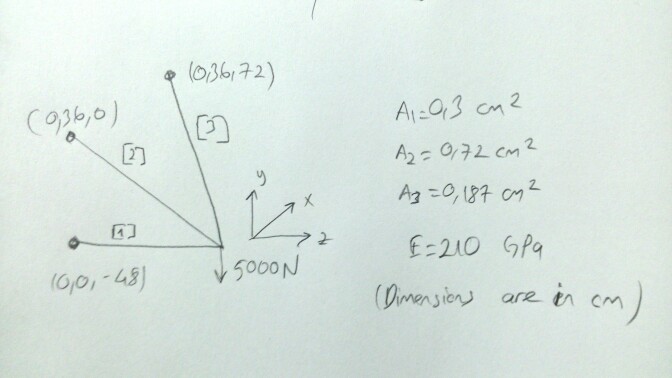 (0,36,72)
(0,36,0)
[3]
[2]
[1]
(0,0,-48)
y
x
z
5000N
A1=0,3 cm²
A2=0,72 cm²
A3=0,187 cm²
E=210 GPa
(Dimensions are in cm)